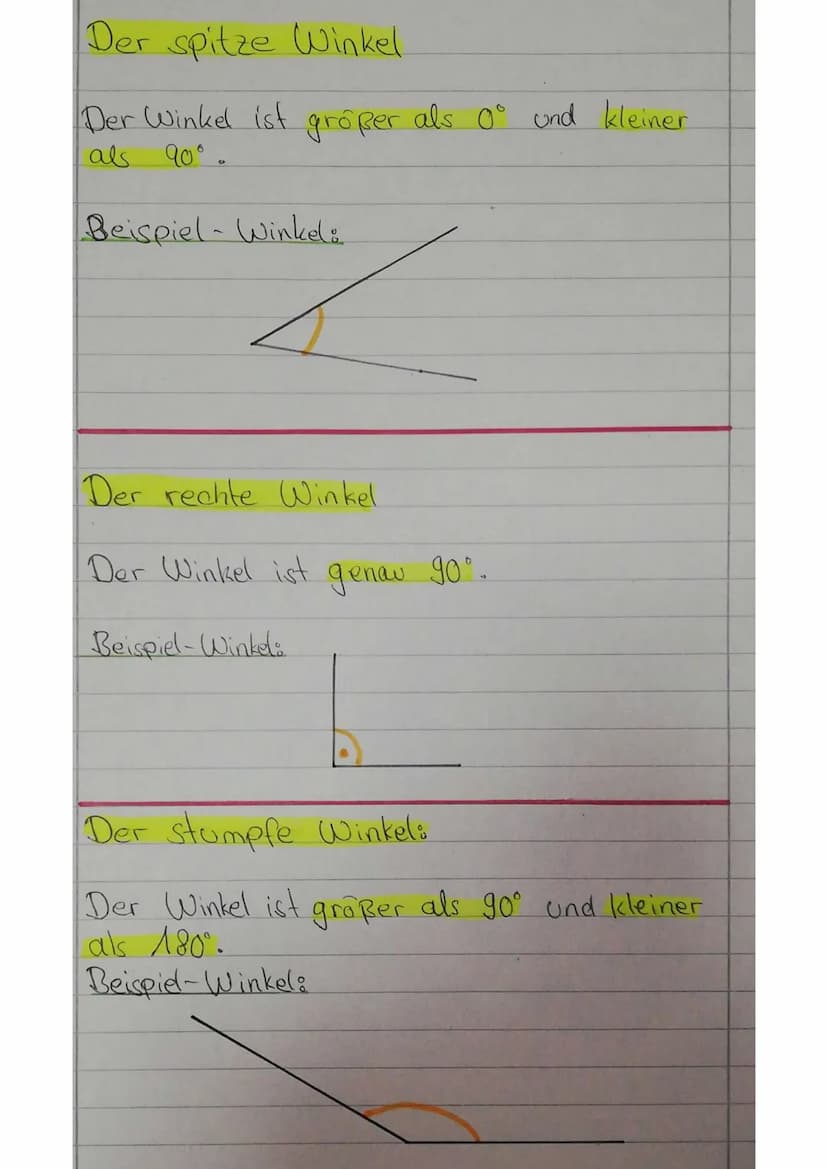 Der spitze Winkel
Der Winkel ist größer als 0° und kleiner
als 90°.
Beispiel-Winkel:
Der rechte Winkel
Der Winkel ist genau 90°.
Beispiel-Winkel:
Der stumpfe Winkel:
Der Winkel ist größer als 90° und kleiner
als 180°.
Beispiel-Winkel: